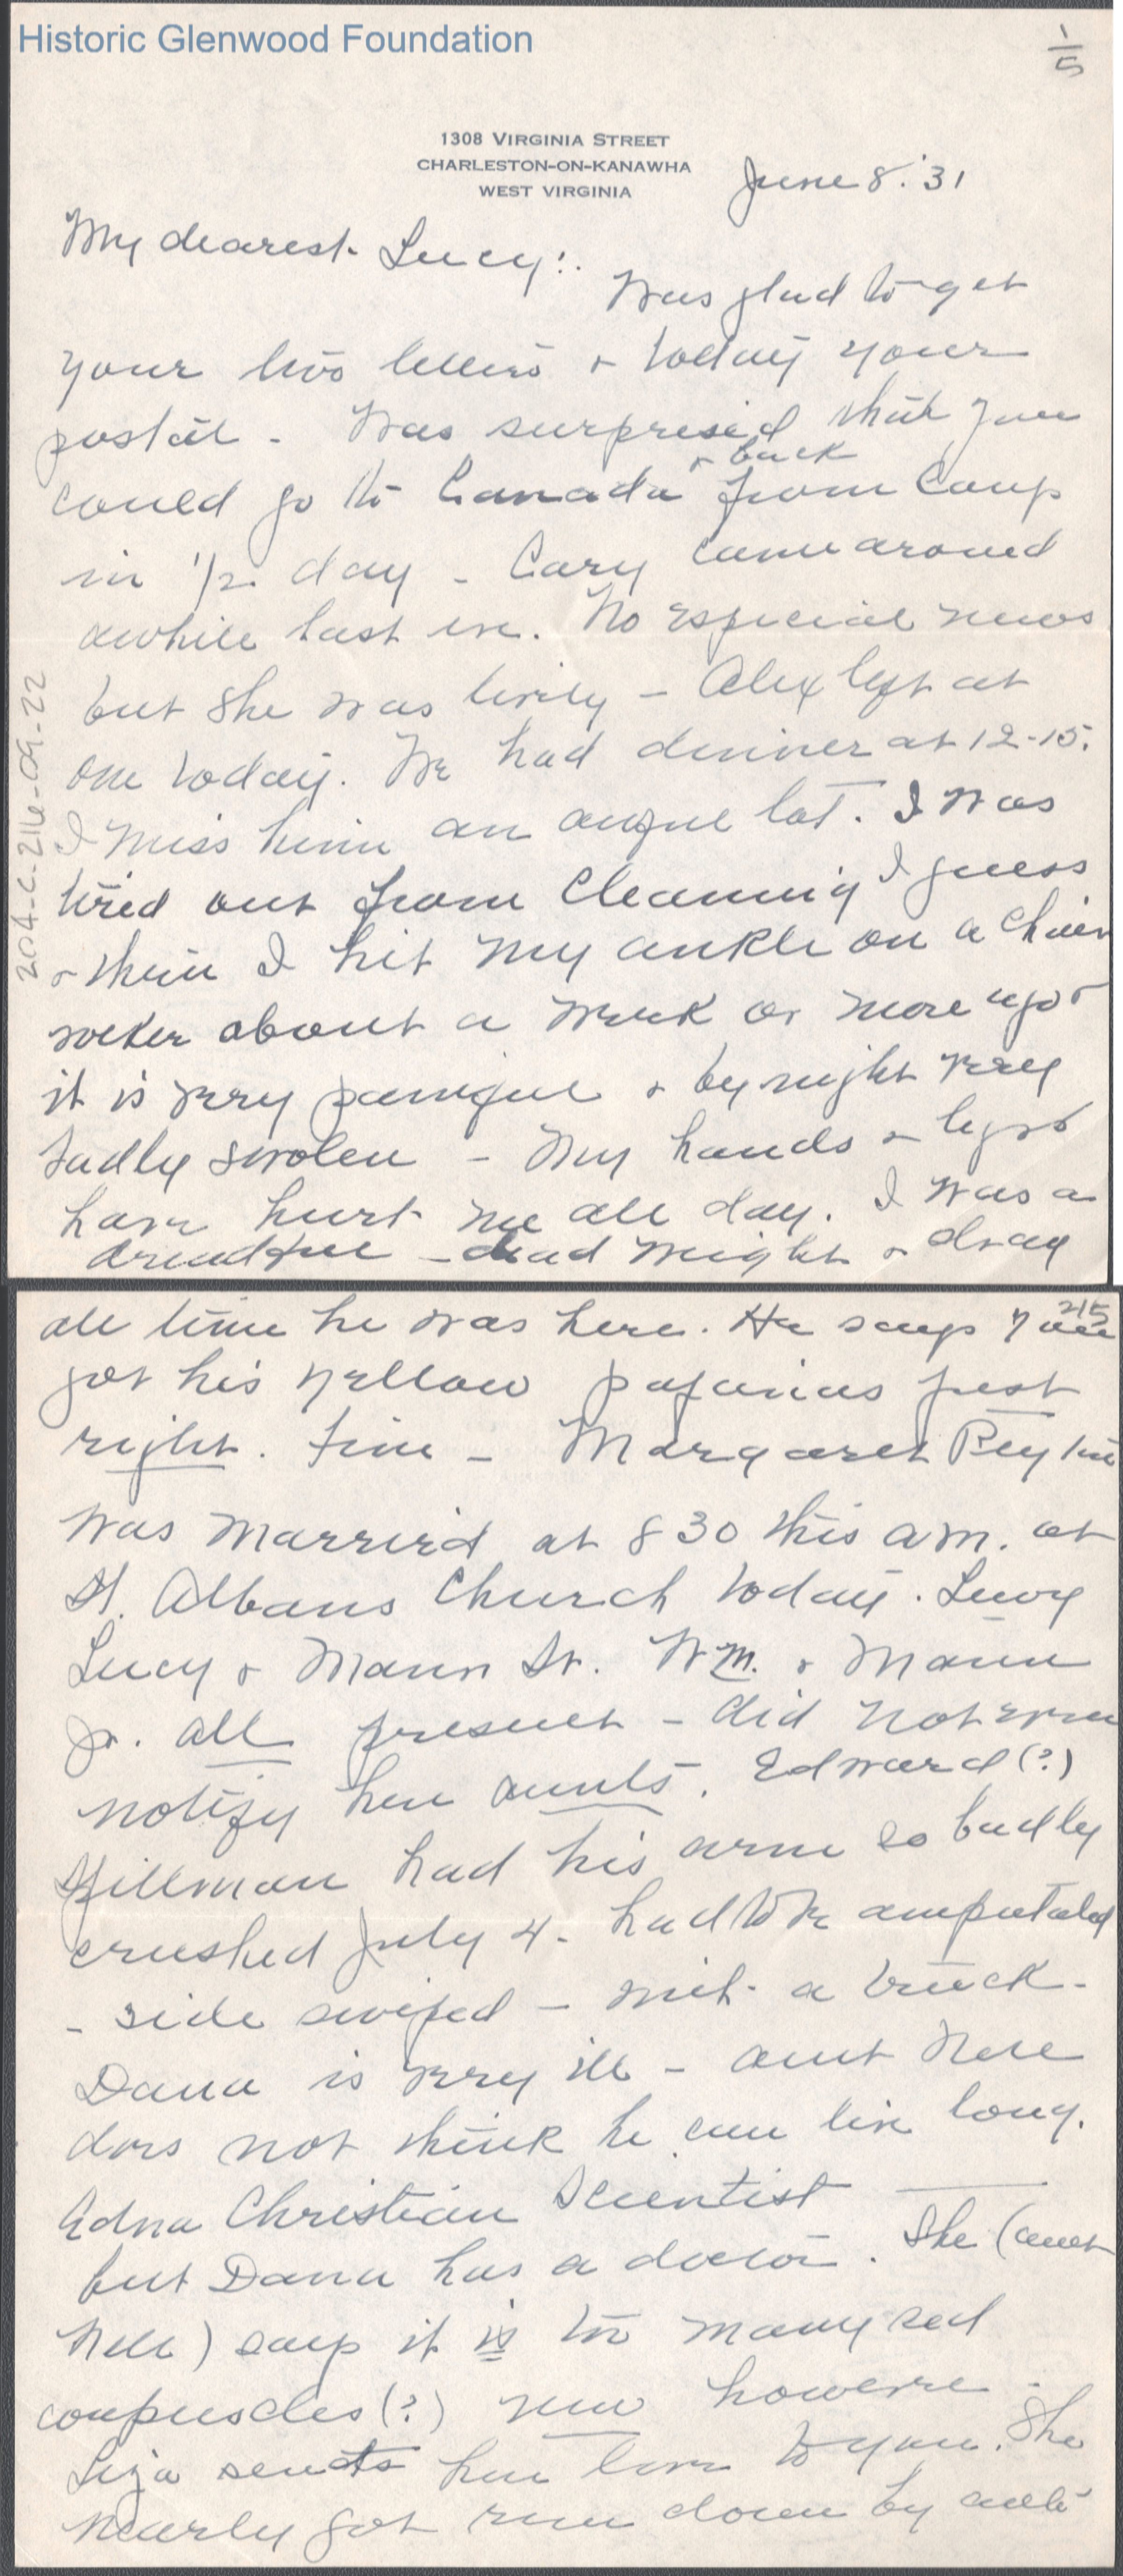 Historic Glenwood Foundation
1/5
1308 VIRGINIA STREET
CHARLESTON-ON-KANAWHA
WEST VIRGINIA
June 8. '31
My dearest Lucy:
Was glad to get
your two letters & today your
postal - Was surprised that you
could go to Canada & back from Camp
in 1/2 day - Cary came around
awhile last eve. No especial news
but she was lively - Alex left at
one today. We had dinner at 12-15.
I miss him an awful lot. I was
tired out from cleaning I guess
& then I hit my ankle on a chair
rocker about a week or more ago &
it is very painful & by night very
badly swolen - My hands & legs
have hurt me all day. I was a
dreadful - dead weight & drag
204-C-216-09-22
2/5
all time he was here. He says you
got his yellow pajamas just
right. Fine - Margaret Peyton
was married at 8 30 this a.m. at
St. Albans Church today. Lewy
Lucy & Mann Sr. Wm. & Mann
Jr. all present - did not even
notify her aunts. Edward (?)
Hillman had his arm so badly
crushed July 4 - had to be amputated
- side swiped - met a truck -
Dana is very ill - aunt Nell
does not think he can live long.
Edna Christian Scientist
but Dana has a doctor. She (aunt
Nell) says it is too many red
corpuscles (?) now however -
Liza sends her love to you. She
nearly got run down by auto